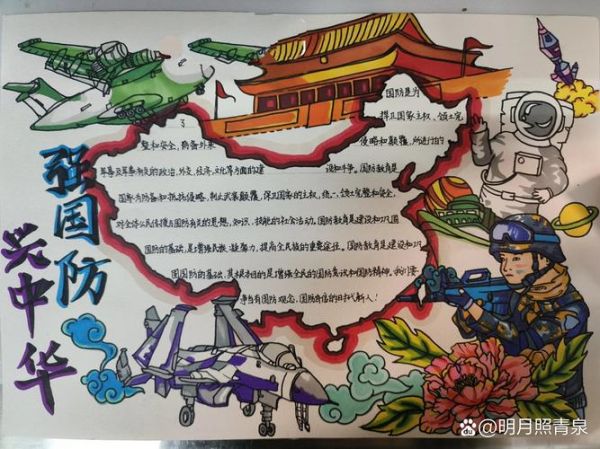 强国防
兴中华
国防是为
了 捍卫国家主权、领土完
整和安全,防备外来 侵略和颠覆,所进行的
军事及军事有关的政治、外交、经济、文化等方面的建 设和斗争。国防教育是
国家为防备和抵抗侵略,制止武装颠覆,保卫国家的主权,统一、领土完整和安全,
对全体公民传授与国防有关的思想、知识、技能的社会活动。国防教育是建设和巩固
国防的基础,是增强民族凝聚力,提高全民族的重要途径。国防教育是建设和巩
固国防的基础,其根本目的是增强全民的国防意识和国防精神。我们要
争当有国防观念、国防 信的时代新人!
明月照青泉